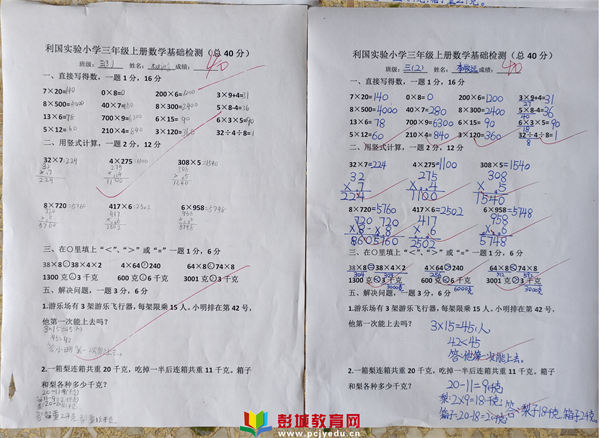 利国实验小学三年级上册数学基础检测（总 40 分）
班级：三(3) 姓名： 成绩：40
一、直接写得数，一题 1 分，16 分
7×20=140 0×8=0 200×6=1200 3×9+4=31
8×500=4000 40×7=280 8×300=2400 5×8-4=36
13×6=78 700×9=6300 6×15=90 6×3×5=90
5×12=60 210×4=840 3×120=360 32÷4÷8=1
二、用竖式计算，一题 2 分，12 分
32×7=224 4×275=1100 308×5=1540
8×720=5760 417×6=2502 6×958=5748
三、在〇里填上 “<”、“>” 或 “=” 一题 1 分，6 分
38×8〇38×4×2 4×64〇240 64×8〇74×8
1300 克〇3 千克 600 克〇6 千克 3001 克〇3 千克
五、解决问题，一题 3 分，6 分
1.游乐场有 3 架游乐飞行器，每架限乘 15 人，小明排在第 42 号，
他第一次能上去吗？
3×15=45(人)
45>42
2.一箱梨连箱共重 20 千克，吃掉一半后连箱共重 11 千克。箱子
和梨各种多少千克？
利国实验小学三年级上册数学基础检测（总 40 分）
班级：三(2) 姓名： 成绩：40
一、直接写得数，一题 1 分，16 分
7×20=140 0×8=0 200×6=1200 3×9+4=31
27
8×500=4000 40×7=280 8×300=2400 5×8-4=36
40
13×6=78 700×9=6300 6×15=90 6×3×5=90
18
5×12=60 210×4=840 3×120=360 32÷4÷8=1
8
二、用竖式计算，一题 2 分，12 分
32×7=224 4×275=1100 308×5=1540
32 275 308
×7 ×4 ×5
224 1100 1540
8×720=5760 417×6=2502 6×958=5748
720 417 958
×8 ×6 ×6
5760 2502 5748
三、在〇里填上 “<”、“>” 或 “=” 一题 1 分，6 分
38×8=38×4×2 4×64>240 64×8<74×8
1300 克<3 千克 600 克<6 千克 3001 克>3 千克
3000克 6000克 3000克
五、解决问题，一题 3 分，6 分
1.游乐场有 3 架游乐飞行器，每架限乘 15 人，小明排在第 42 号，
他第一次能上去吗？
3×15=45(人)
42<45
答:他第一次能上去。
2.一箱梨连箱共重 20 千克，吃掉一半后连箱共重 11 千克。箱子
和梨各种多少千克？
20-11=9(千克)
梨:2×9=18(千克)
箱子:20-18=2(千克) 答:梨子18千克,箱子2千克
彭城教育网
www.pcjyedu.cn